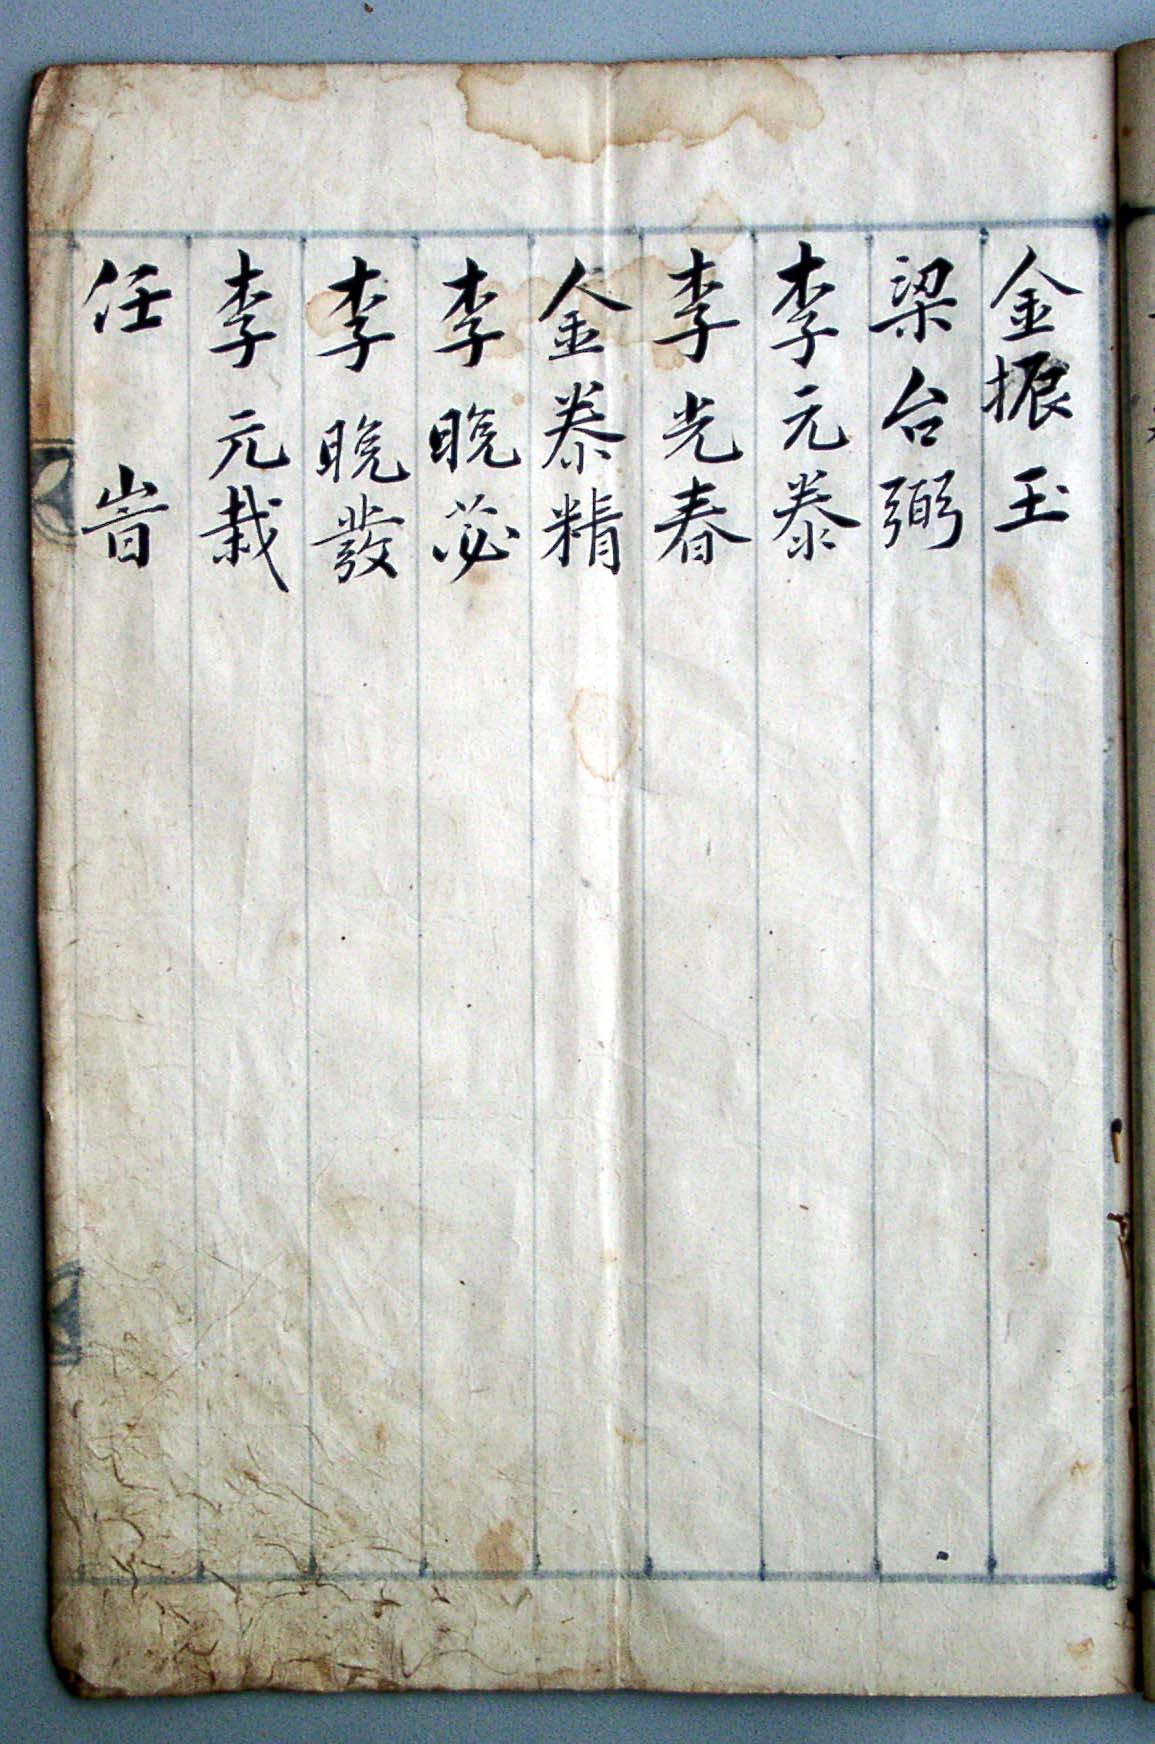 金振玉
梁台弼
李元泰
李光春
金泰精
李晩苾
李晩發
李元栽
任 峕